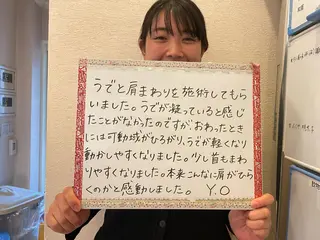 うでと肩まわりを施術してもら
いました。うでが凝っていると感じ
たことがなかったのですが、おわったとき
には可動域がひろがり、うでが軽くなり
動かしやすくなりました。少し首もまわ
りやすくなりました。本来こんなに肩がひら
くのかと感動しました。 Y.O